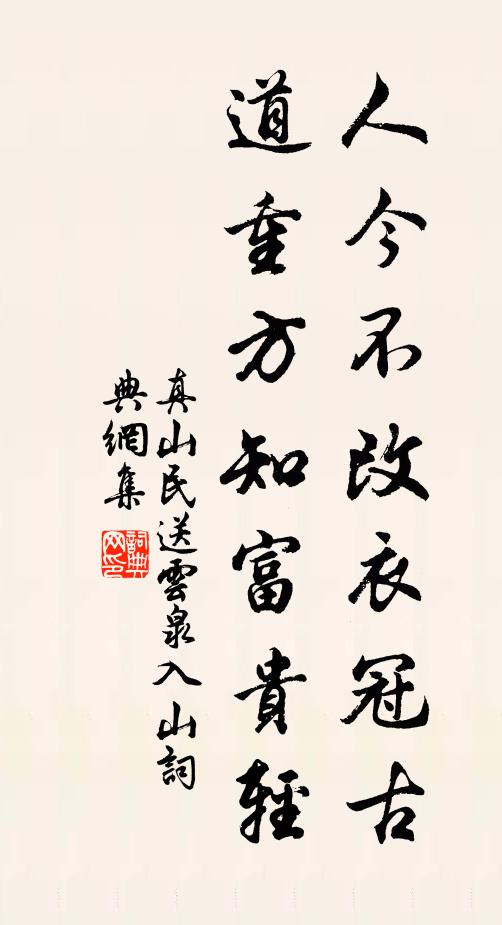 人今不改衣冠古
道重方知富貴輕
真山民送雲泉入山詞
典網集
詞典
网印